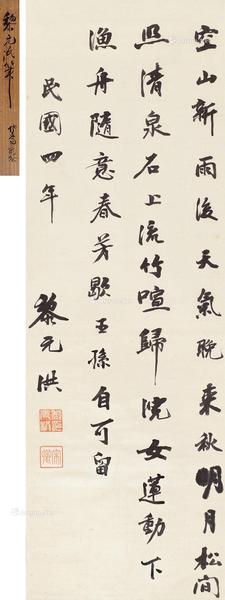 空山新雨後天氣晚來秋明月松間
照清泉石上流竹喧歸浣女蓮動下
漁舟隨意春芳歇王孫自可留
民國四年
黎元洪
黎元洪筆